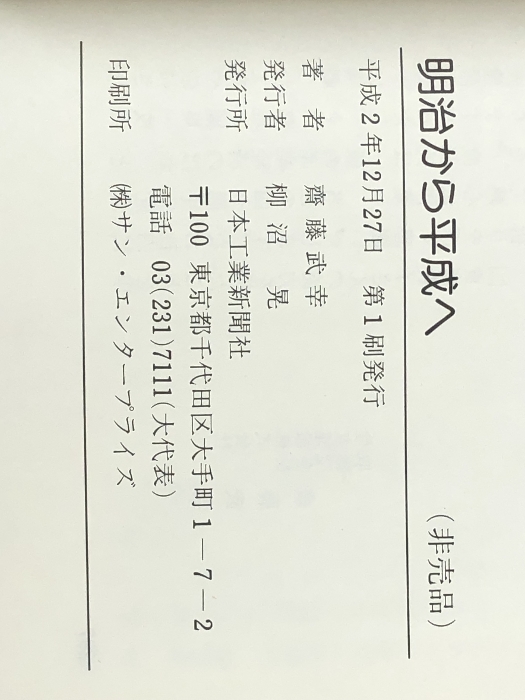 明治から平成へ (非売品)
平成2年12月27日 第1刷発行
著者 齋藤武幸
発行者 柳沼晃
発行所 日本工業新聞社
〒100 東京都千代田区大手町1―7―2
電話 03(231)7111(大代表)
印刷所 ㈱サン・エンタープライズ